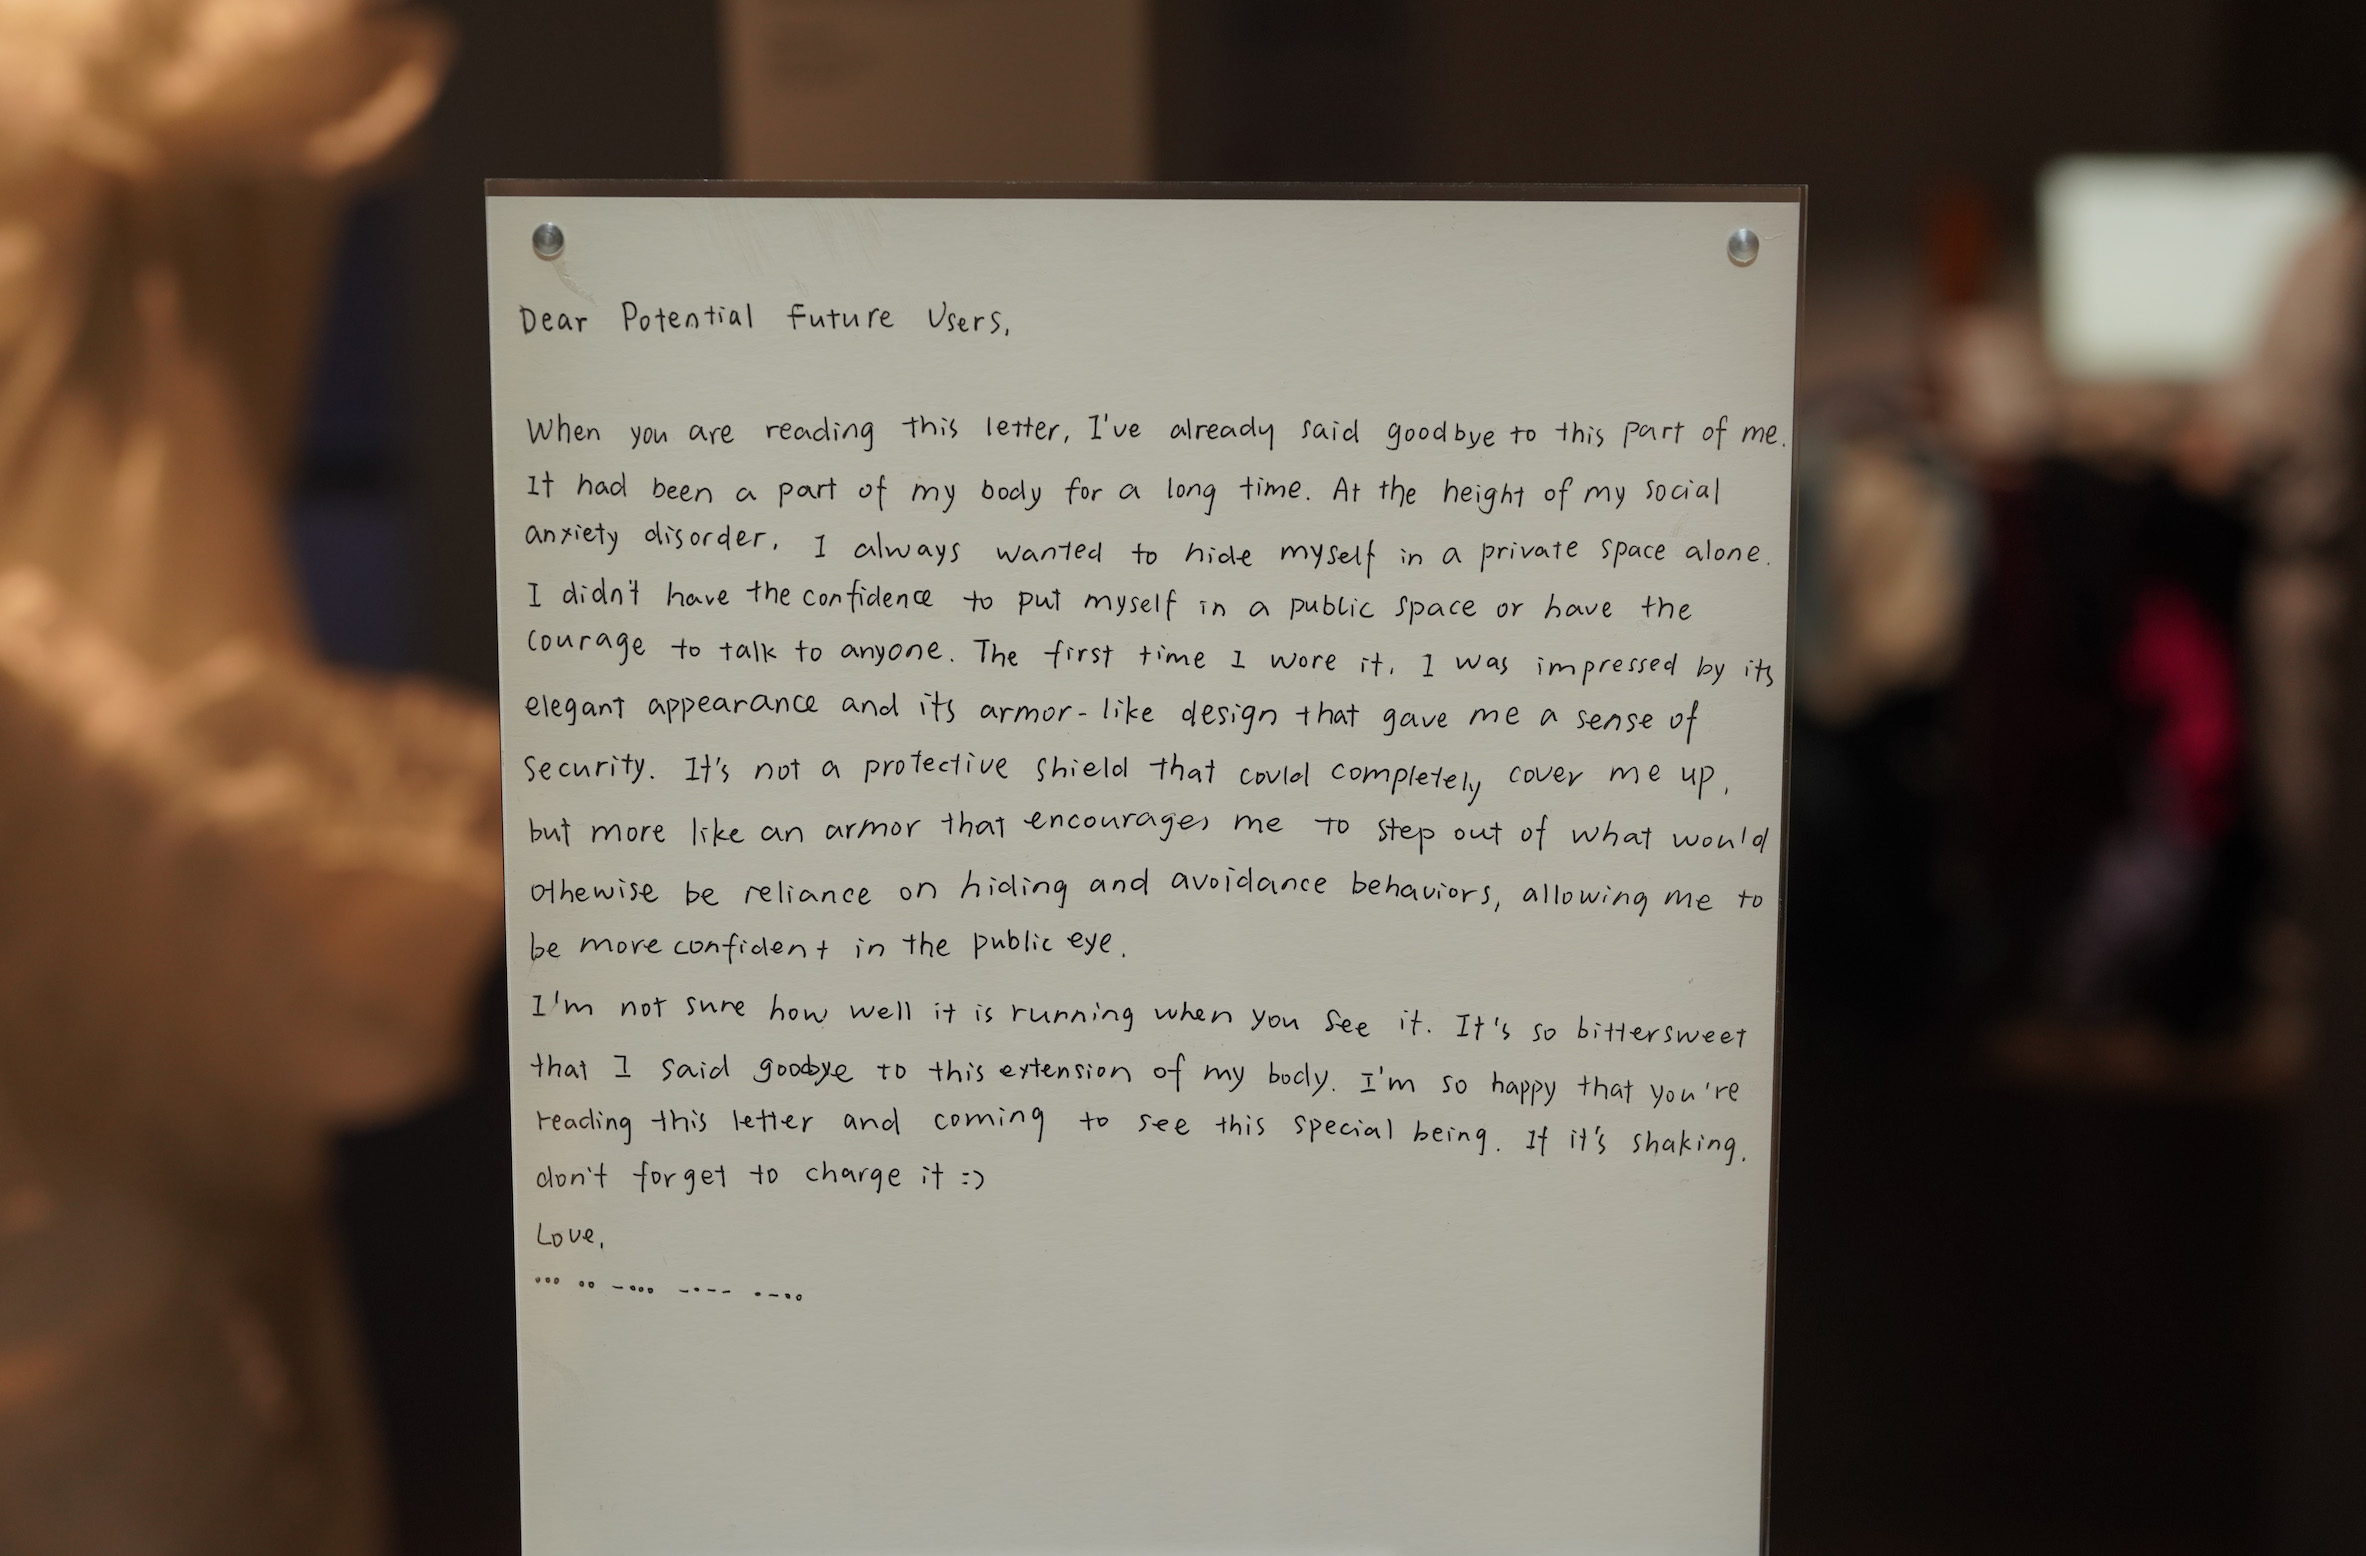 Dear Potential Future Users,
When you are reading this letter, I've already said goodbye to this part of me.
It had been a part of my body for a long time. At the height of my social
anxiety disorder, I always wanted to hide myself in a private space alone.
I didn't have the confidence to put myself in a public space or have the
courage to talk to anyone. The first time I wore it, I was impressed by its
elegant appearance and its armor-like design that gave me a sense of
security. It's not a protective shield that could completely cover me up,
but more like an armor that encourages me to step out of what would
othewise be reliance on hiding and avoidance behaviors, allowing me to
be more confident in the public eye.
I'm not sure how well it is running when you see it. It's so bittersweet
that I said goodbye to this extension of my body. I'm so happy that you're
reading this letter and coming to see this special being. If it's shaking,
don't forget to charge it :)
Love,
... .. -... -.-- .-..